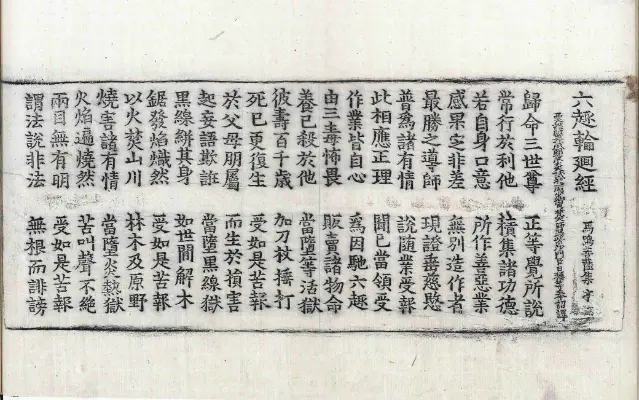 六趣輪廻經
馬鳴菩薩集 宇
歸命三世尊 正等覺所說
常行於利他 積集諸功德
若自身口意 所作善惡業
感果定非差 無別造作者
最勝之導師 現證垂慈愍
普爲諸有情 說隨業受報
此相應正理 聞已當領受
作業皆自心 爲因馳六趣
由三毒怖畏 販賣諸物命
養己殺於他 當墮等活獄
彼壽百千歲 加刀杖捶打
死已更復生 受如是苦報
於父母朋屬 而生於損害
起妄語欺誑 當墮黑線獄
黑線絣其身 如世間解木
鋸發焰熾然 受如是苦報
以火焚山川 林木及原野
燒害諸有情 當墮炎熱獄
火焰遍燒然 苦叫聲不絶
兩目無有明 受如是苦報
謂法說非法 無根而誹謗